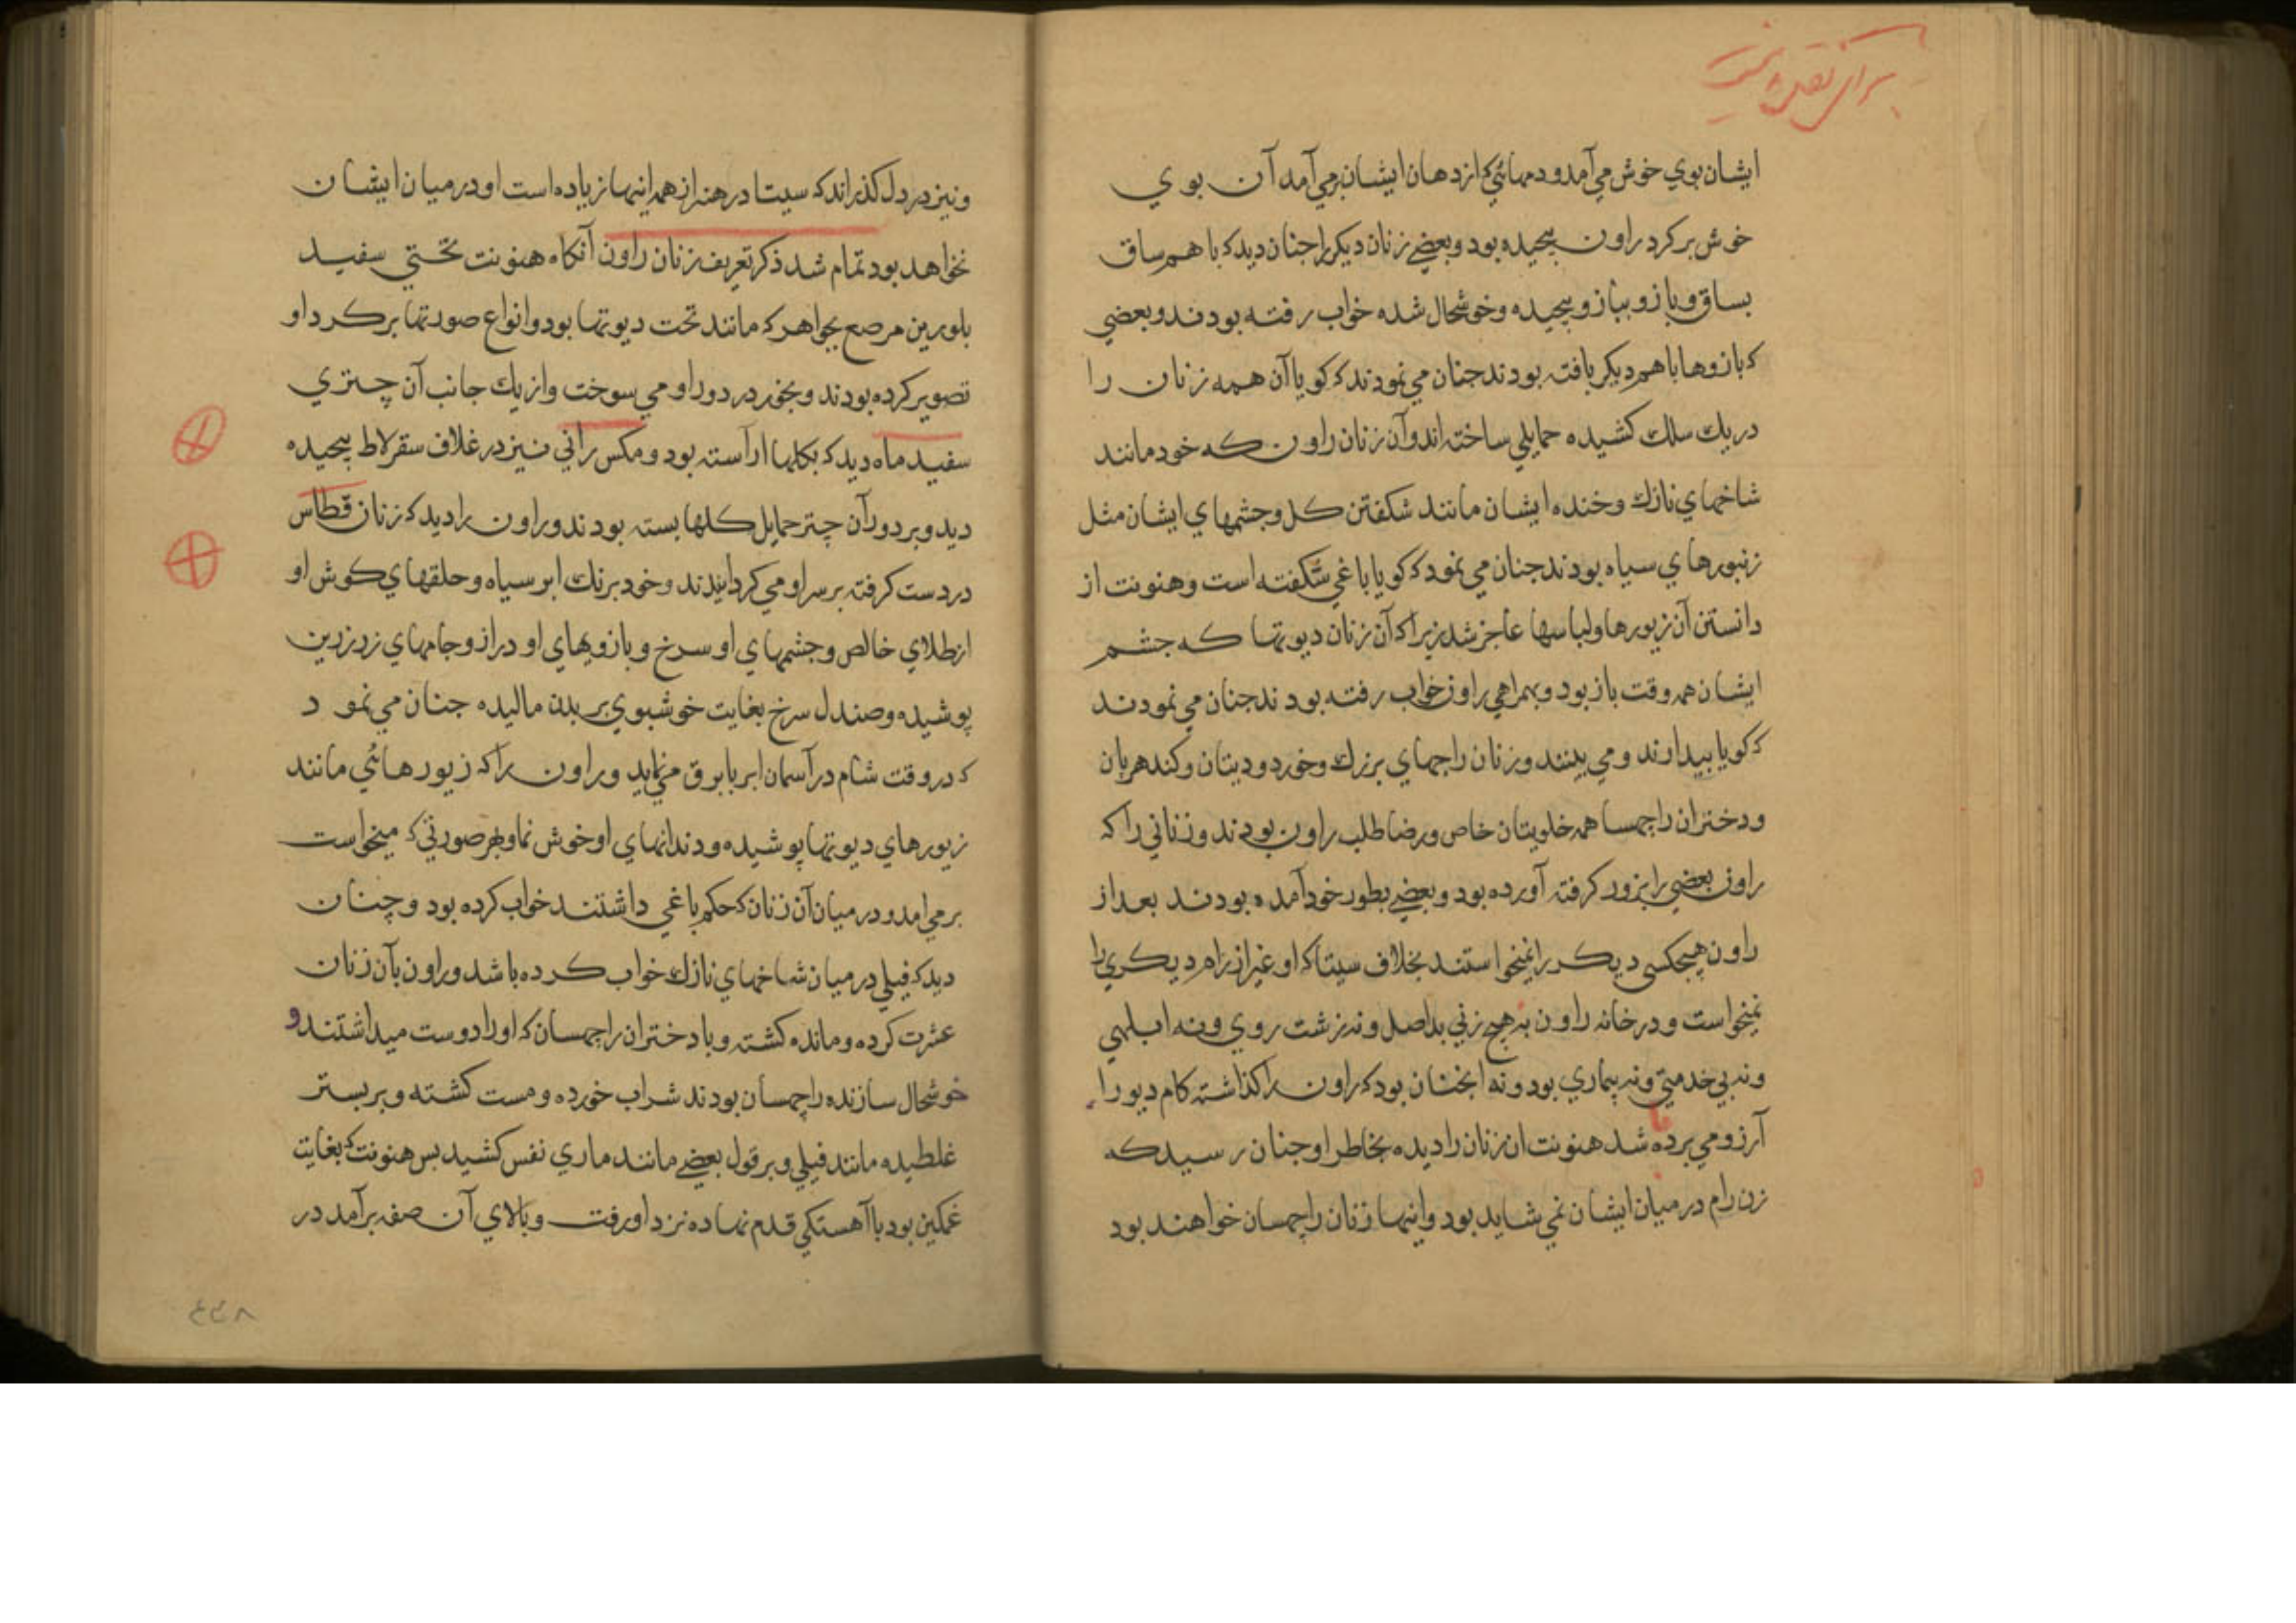 ایشان بوي خوش مي‌آمد و دمهائي که از دهان ایشان برمي‌آمد آن بوي
خوش بر کرد راون پیچیده بود و بعضے زنان دیکر را جنان دید که با هم ساق
بساق و بازو ببازو پیچیده و خوشحال شده خواب رفته بودند و بعضي
که بازوها با هم دیکر بافته بودند جنان مي نمودند که کویا آن همه زنان را
در یك سلك کشیده حمایلي ساخته اند و آن زنان راون که خود مانند
شاخهاي نازك و خنده ایشان مانند شکفتن کل و جشمهاي ایشان مثل
زنبورهاي سیاه بودند جنان مي نمود که کویا باغي شکفته است و هنونت از
دانستن آن زیورها و لباسها عاجز شد زیرا که آن زنان دیوتها که جشم
ایشان همه وقت باز بود و بهمراهي راون خواب رفته بودند جنان مي نمودند
که کویا بیدارند و مي بینند و زنان راجهاي بزرك و خورد و دیتان و کندهربان
و دختران راجهسا همه خلویتان خاص و رضا طلب راون بودند و زناني را که
راون بعضي را بزور کرفته آورده بود و بعضے بطور خود آمده بودند بعد از
راون هیچکسی دیکر را نمیخواستند بخلاف سیتا که او غیر از رام دیکري را
نمیخواست و در خانه راون نه هیچ زني بد اصل و نه زشت روي و نه ابلهي
و نه بي خدمتي و نه بیماري بود و نه انجنان بود که راون را کذاشته کام دیو را
آرزو مي برده شد هنونت ان زنان را دیده بخاطر او جنان رسید که
زن رام در میان ایشان نمي شاید بود و اینها زنان راجهسان خواهند بود
و نیز در دل کذراند که سیتا در هنر از همه اینها زیاده است او در میان ایشان
نخواهد بود تمام شد ذکر تعریف زنان راون آنکاه هنونت تختي سفید
بلورین مرصع بجواهر که مانند تخت دیوتها بود و انواع صورتها بر کرد او
تصویر کرده بودند و بخور در دور او مي سوخت و از یك جانب آن چتري
سفید ماه دید که بکلها اراسته بود و مکس راني نیز در غلاف سقرلاط پیچیده
دید و بر دور آن چتر حمایل کلها بسته بودند و راون را دید که زنان قطاس
در دست کرفته بر سر او مي کردانیدند و خود برنك ابر سیاه و حلقهاي کوش او
از طلاي خالص و جشمهاي او سرخ و بازویهاي او دراز و جامهاي زرد زرین
پوشیده و صندل سرخ بغایت خوشبوي بر بدن مالیده جنان مي نمود
که در وقت شام در آسمان ابر با برق مي نماید و راون را که زیورهائي مانند
زیورهاي دیوتها پوشیده و دندانهاي او خوش نما و بهر صورتي که میخواست
برمي امد و در میان آن زنان که حکم باغي داشتند خواب کرده بود و چنان
دید که فیلي در میان شاخهاي نازك خواب کرده باشد و راون بآن زنان
عشرت کرده و مانده کشته و با دختران راجهسان که او را دوست میداشتند و
خوشحال سازنده راجهسان بودند شراب خورده و مست کشته و بر بستر
غلطیده مانند فیلي و بر قول بعضے مانند ماري نفس کشید بس هنونت که بغایت
غمکین بود با آهستکي قدم نهاده نزد او رفت و بالاي آن صفه برآمد در
۴۴۸